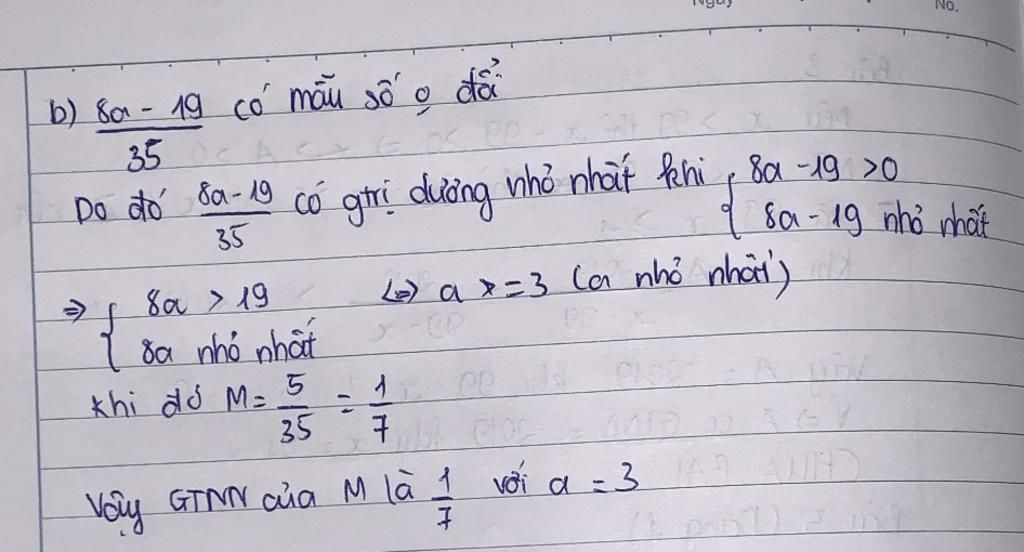 Ngày
No.
b) (8a - 19)/35 có mẫu số o đổi
Do đó (8a-19)/35 có gtrị dương nhỏ nhất khi { 8a-19 >0
8a-19 nhỏ nhất
=> { 8a > 19 <=> a = 3 (a nhỏ nhất)
8a nhỏ nhất
Khi đó M = 5/35 = 1/7
Vậy GTNN của M là 1/7 với a = 3